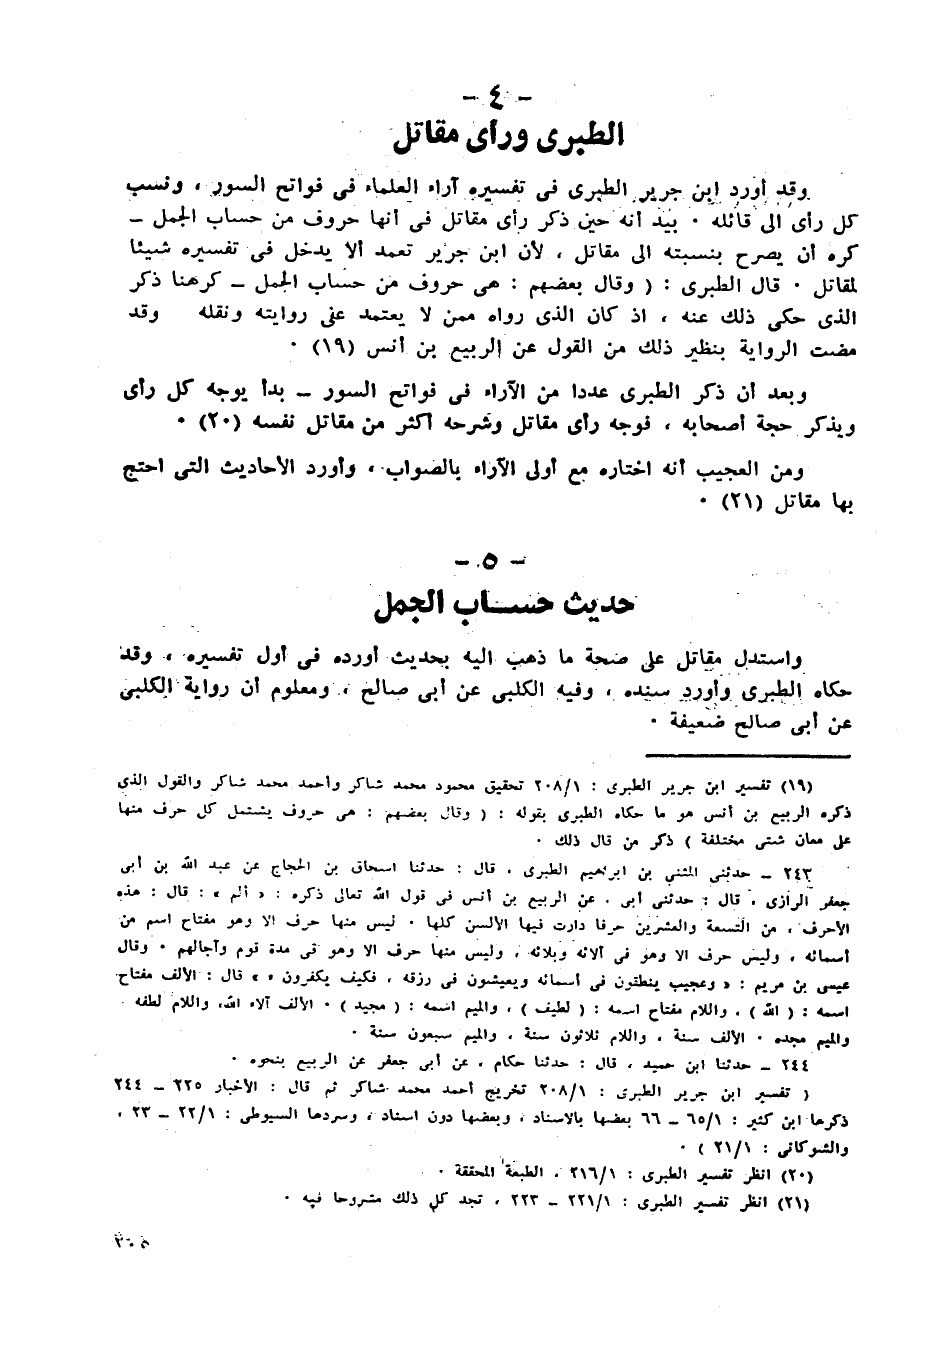 - ٤ -
الطبرى ورأى مقاتل
وقد أورد ابن جرير الطبرى فى تفسيره آراء العلماء فى فواتح السور ، ونسب
كل رأى الى قائله ٠ بيد أنه حين ذكر رأى مقاتل فى أنها حروف من حساب الجمل –
كره أن يصرح بنسبته الى مقاتل ، لأن ابن جرير تعمد ألا يدخل فى تفسيره شيئا
لمقاتل ٠ قال الطبرى : ( وقال بعضهم : هى حروف من حساب الجمل – كرهنا ذكر
الذى حكى ذلك عنه ، اذ كان الذى رواه ممن لا يعتمد على روايته ونقله وقد
مضت الرواية بنظير ذلك من القول عن الربيع بن أنس (١٩) ٠
وبعد أن ذكر الطبرى عددا من الآراء فى فواتح السور – بدأ يوجه كل رأى
ويذكر حجة أصحابه ، فوجه رأى مقاتل وشرحه أكثر من مقاتل نفسه (٢٠) ٠
ومن العجيب أنه اختاره مع أولى الآراء بالصواب ، وأورد الأحاديث التى احتج
بها مقاتل (٢١) ٠
- ٥ -
حديث حساب الجمل
واستدل مقاتل على صحة ما ذهب اليه بحديث أورده فى أول تفسيره ، وقد
حكاه الطبرى وأورد سنده ، وفيه الكلبى عن أبى صالح ، ومعلوم أن رواية الكلبى
عن أبى صالح ضعيفة ٠
(١٩) تفسير ابن جرير الطبرى : ٢٠٨/١ تحقيق محمود محمد شاكر وأحمد محمد شاكر والقول الذى
ذكره الربيع بن أنس هو ما حكاه الطبرى بقوله : ( وقال بعضهم : هى حروف يشتمل كل حرف منها
على معان شتى مختلفة ) ذكر من قال ذلك ٠
٢٤٣ – حدثنى المثنى بن ابرهيم الطبرى ، قال : حدثنا اسحاق بن الحجاج عن عبد الله بن أبى
جعفر الرازى ، قال : حدثنى أبى ، عن الربيع بن أنس فى قول الله تعالى ذكره : « ألم » : قال : هذه
الأحرف ، من التسعة والعشرين حرفا دارت فيها الألسن كلها ٠ ليس منها حرف الا وهو مفتاح اسم من
أسمائه ، وليس حرف الا وهو فى آلائه وبلائه ، وليس منها حرف الا وهو فى مدة قوم وآجالهم ٠ وقال
عيسى بن مريم : « وعجيب ينطقون فى أسمائه ويعيشون فى رزقه ، فكيف يكفرون » » قال : الألف مفتاح
اسمه : ( الله ) ، واللام مفتاح اسمه : ( لطيف ) ، والميم اسمه : ( مجيد ) ٠ الألف آلاء الله، واللام لطفه ٠
والميم مجده ٠ الألف سنة ، واللام ثلاثون سنة ، والميم سبعون سنة ٠
٢٤٤ – حدثنا ابن حميد ، قال : حدثنا حكام ، عن أبى جعفر عن الربيع بنحوه ٠
( تفسير ابن جرير الطبرى : ٢٠٨/١ تخريج أحمد محمد شاكر ثم قال : الأخبار ٢٢٥ – ٢٤٤
ذكرها ابن كثير : ٦٥/١ – ٦٦ بعضها بالاسناد ، وبعضها دون اسناد ، وسردها السيوطى : ٢٢/١ – ٢٣ ،
والشوكانى : ٢١/١ ) ٠
(٢٠) انظر تفسير الطبرى : ٢١٦/١ ، الطبعة المحققة ٠
(٢١) انظر تفسير الطبرى : ٢٢١/١ – ٢٢٣ ، تجد كل ذلك مشروحا فيه ٠
٣٠٥